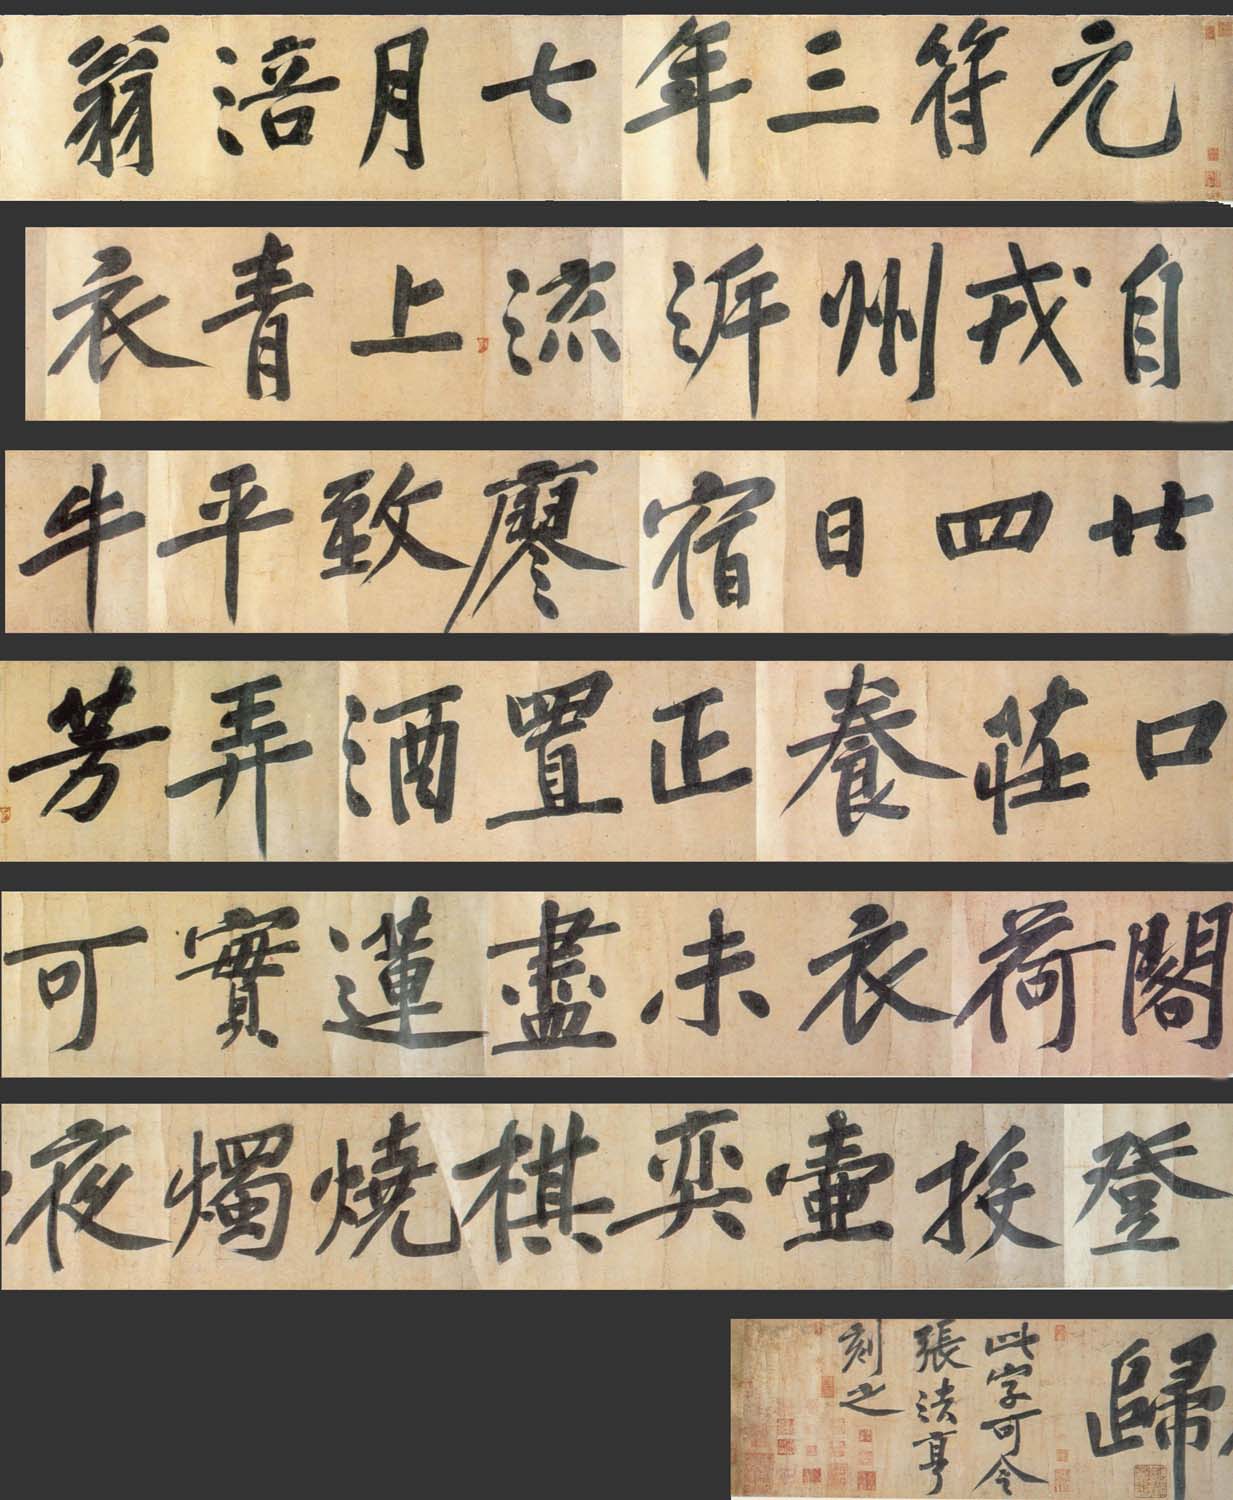 元符三年七月涪翁
自戎州泝流上青衣
廿四日宿廖致平牛
口莊養正置酒弄芳
閣荷衣未盡蓮實可
登投壺奕棋燒燭夜
歸
此字可令
張法亨
刻之